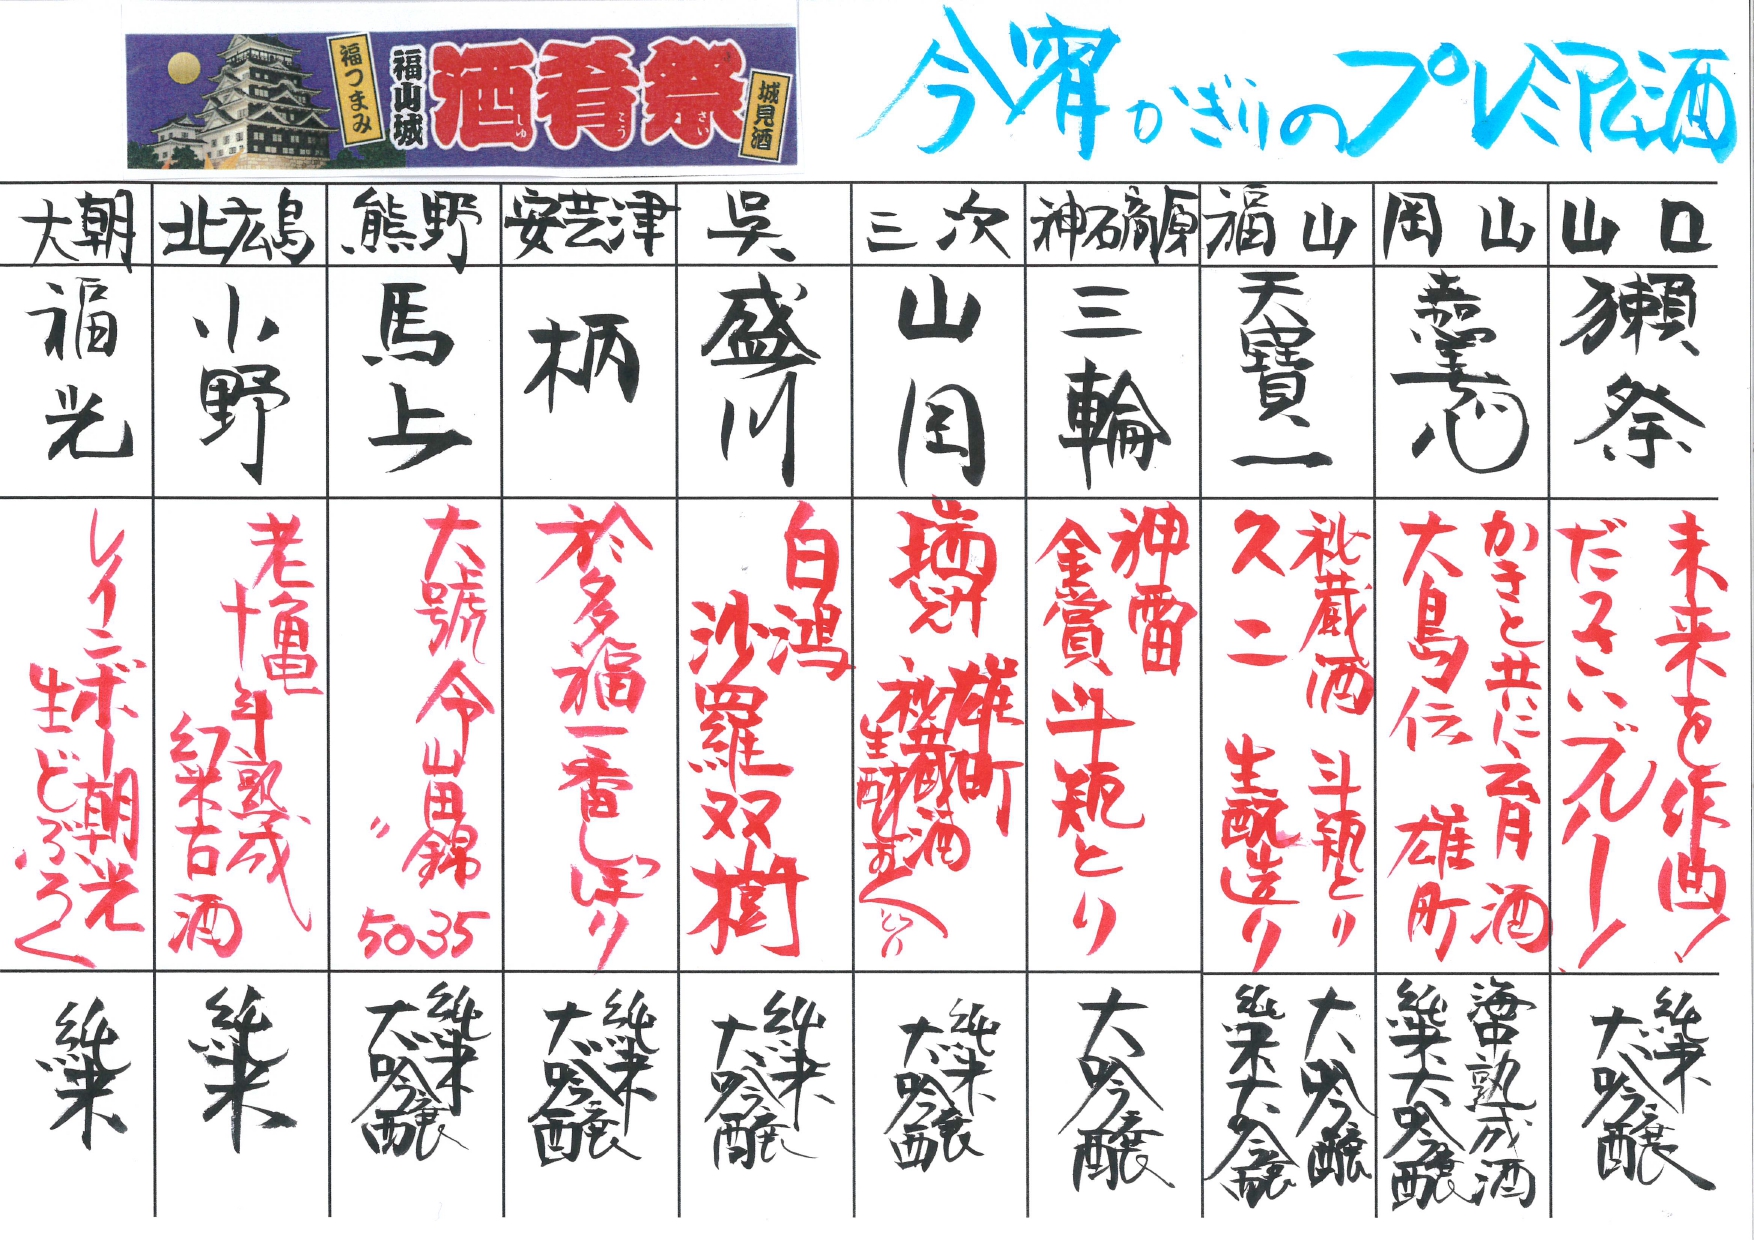 福つまみ
福山城
酒肴祭
しゅ こう さい
城見酒
今宵かぎりのプレミアム酒
山口
獺祭
未来を作曲!
だっさいブルー!
純米
大吟醸
岡山
嘉美心
かきと共に育酒
大島伝 雄町
海中熟成酒
純米大吟醸
福山
天寶一
秘蔵酒 斗瓶とり
久二 生酛造り
大吟醸
純米大吟醸
神石高原
三輪
神雷
金賞 斗瓶とり
大吟醸
三次
山岡
瑞冠
雄町
秘蔵酒
純米
大吟醸
呉
盛川
白鴻
沙羅双樹
純米
大吟醸
安芸津
柄
於多福一番しぼり
純米
大吟醸
熊野
馬上
大號令山田錦
〃 50.35
純米
大吟醸
北広島
小野
老亀
十年熟成
幻米古酒
純米
大朝
福光
レインボー朝光
生どぶろく
純米